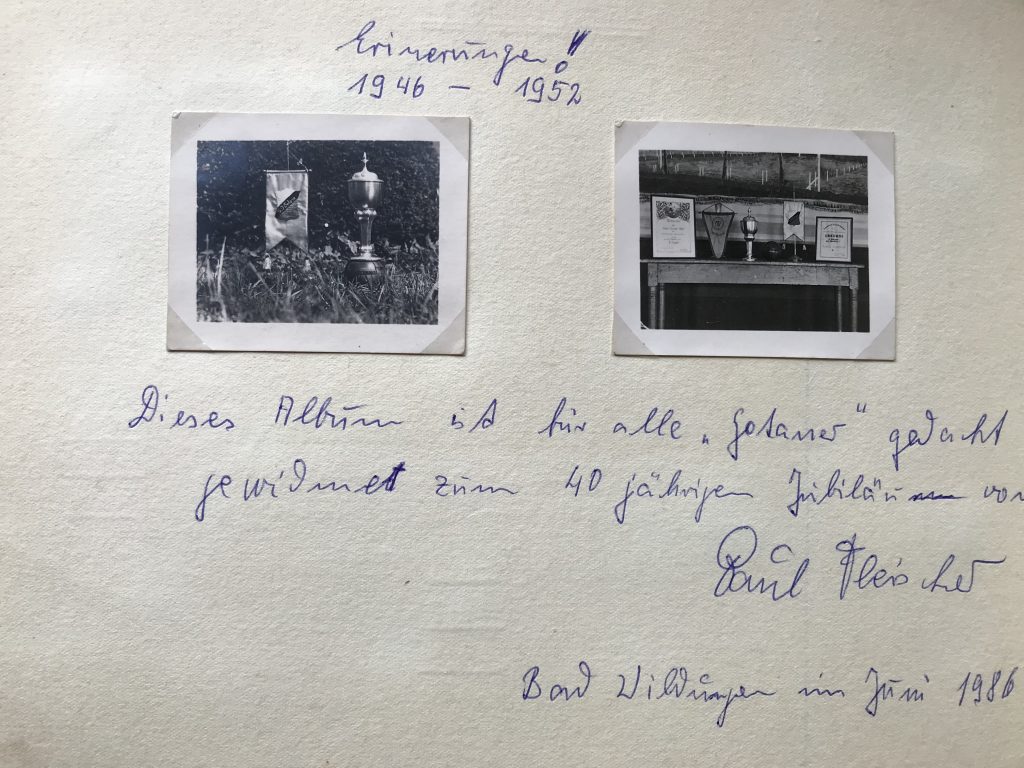 Erinerungen!!
1946 – 1952
Dieses Album ist für alle „Gotaner" gedacht
gewidmet zum 40 jährigen Jubiläum von
Paul Fleischer
Bad Wildungen im Juni 1986